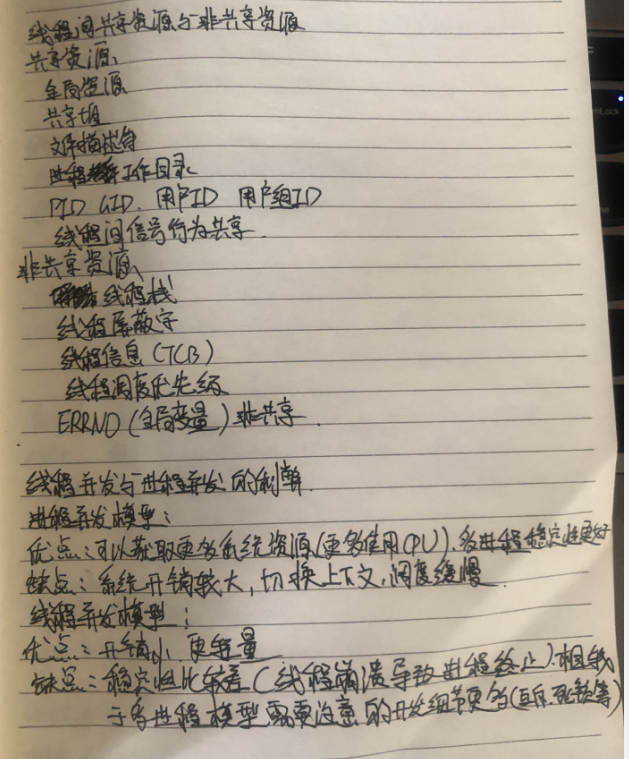 线程间共享资源与非共享资源
共享资源、
全局资源
共享堆
文件描述符
进程工作目录
PID GID. 用户ID 用户组ID
线程间信号行为共享.
非共享资源、
线程栈
线程屏蔽字
线程信息(TCB)
线程调度优先级
ERRNO(全局变量)非共享.
线程并发与进程并发的利弊.
进程并发模型:
优点:可以获取更多系统资源(更多使用CPU).多进程稳定性更好
缺点:系统开销较大,切换上下文,调度缓慢.
线程并发模型:
优点:开销小,更轻量
缺点:稳定性比较差(线程崩溃导致进程终止).相较
于多进程模型需要注意的开发细节更多(互斥.死锁等)